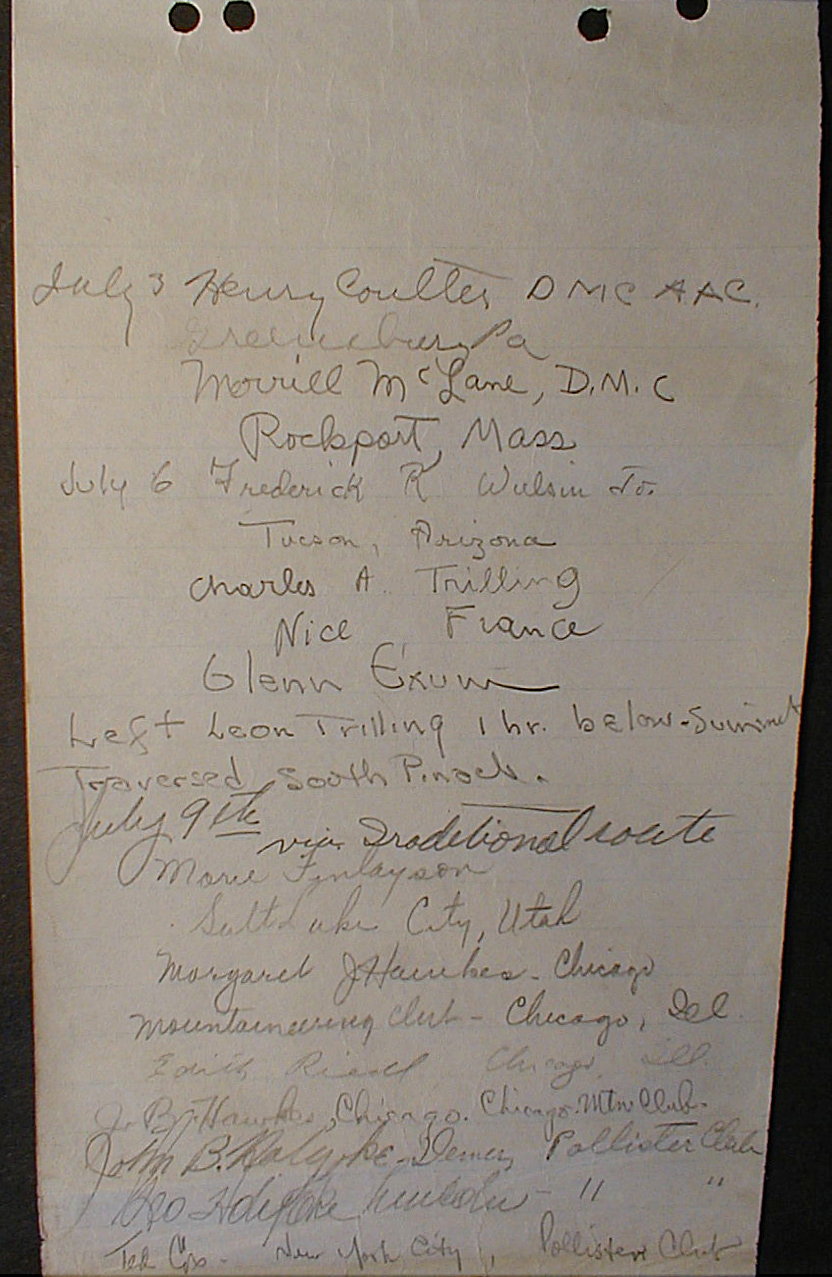 July 3 Henry Coulter DMC AAC.
Greensburg Pa
Morrill McLane, D.M.C
Rockport, Mass
July 6 Frederick R Wulsin Jr.
Tucson, Arizona
Charles A. Trilling
Nice France
Glenn Exum
Left Leon Trilling 1 hr. below-Summit
Traversed South Pinacle.
July 9th via Traditional route
Marie Finlayson
Salt Lake City, Utah
Margaret J Hawkes - Chicago
Mountaineering Club - Chicago, Ill.
Edith Chicago, Ill.
J. B. Hawkes, Chicago. Chicago Mtn Club.
John B. Holyoke - Denver, Pollister Club
Geo Lincoln - " "
Ted Cox - New York City, Pollister Club